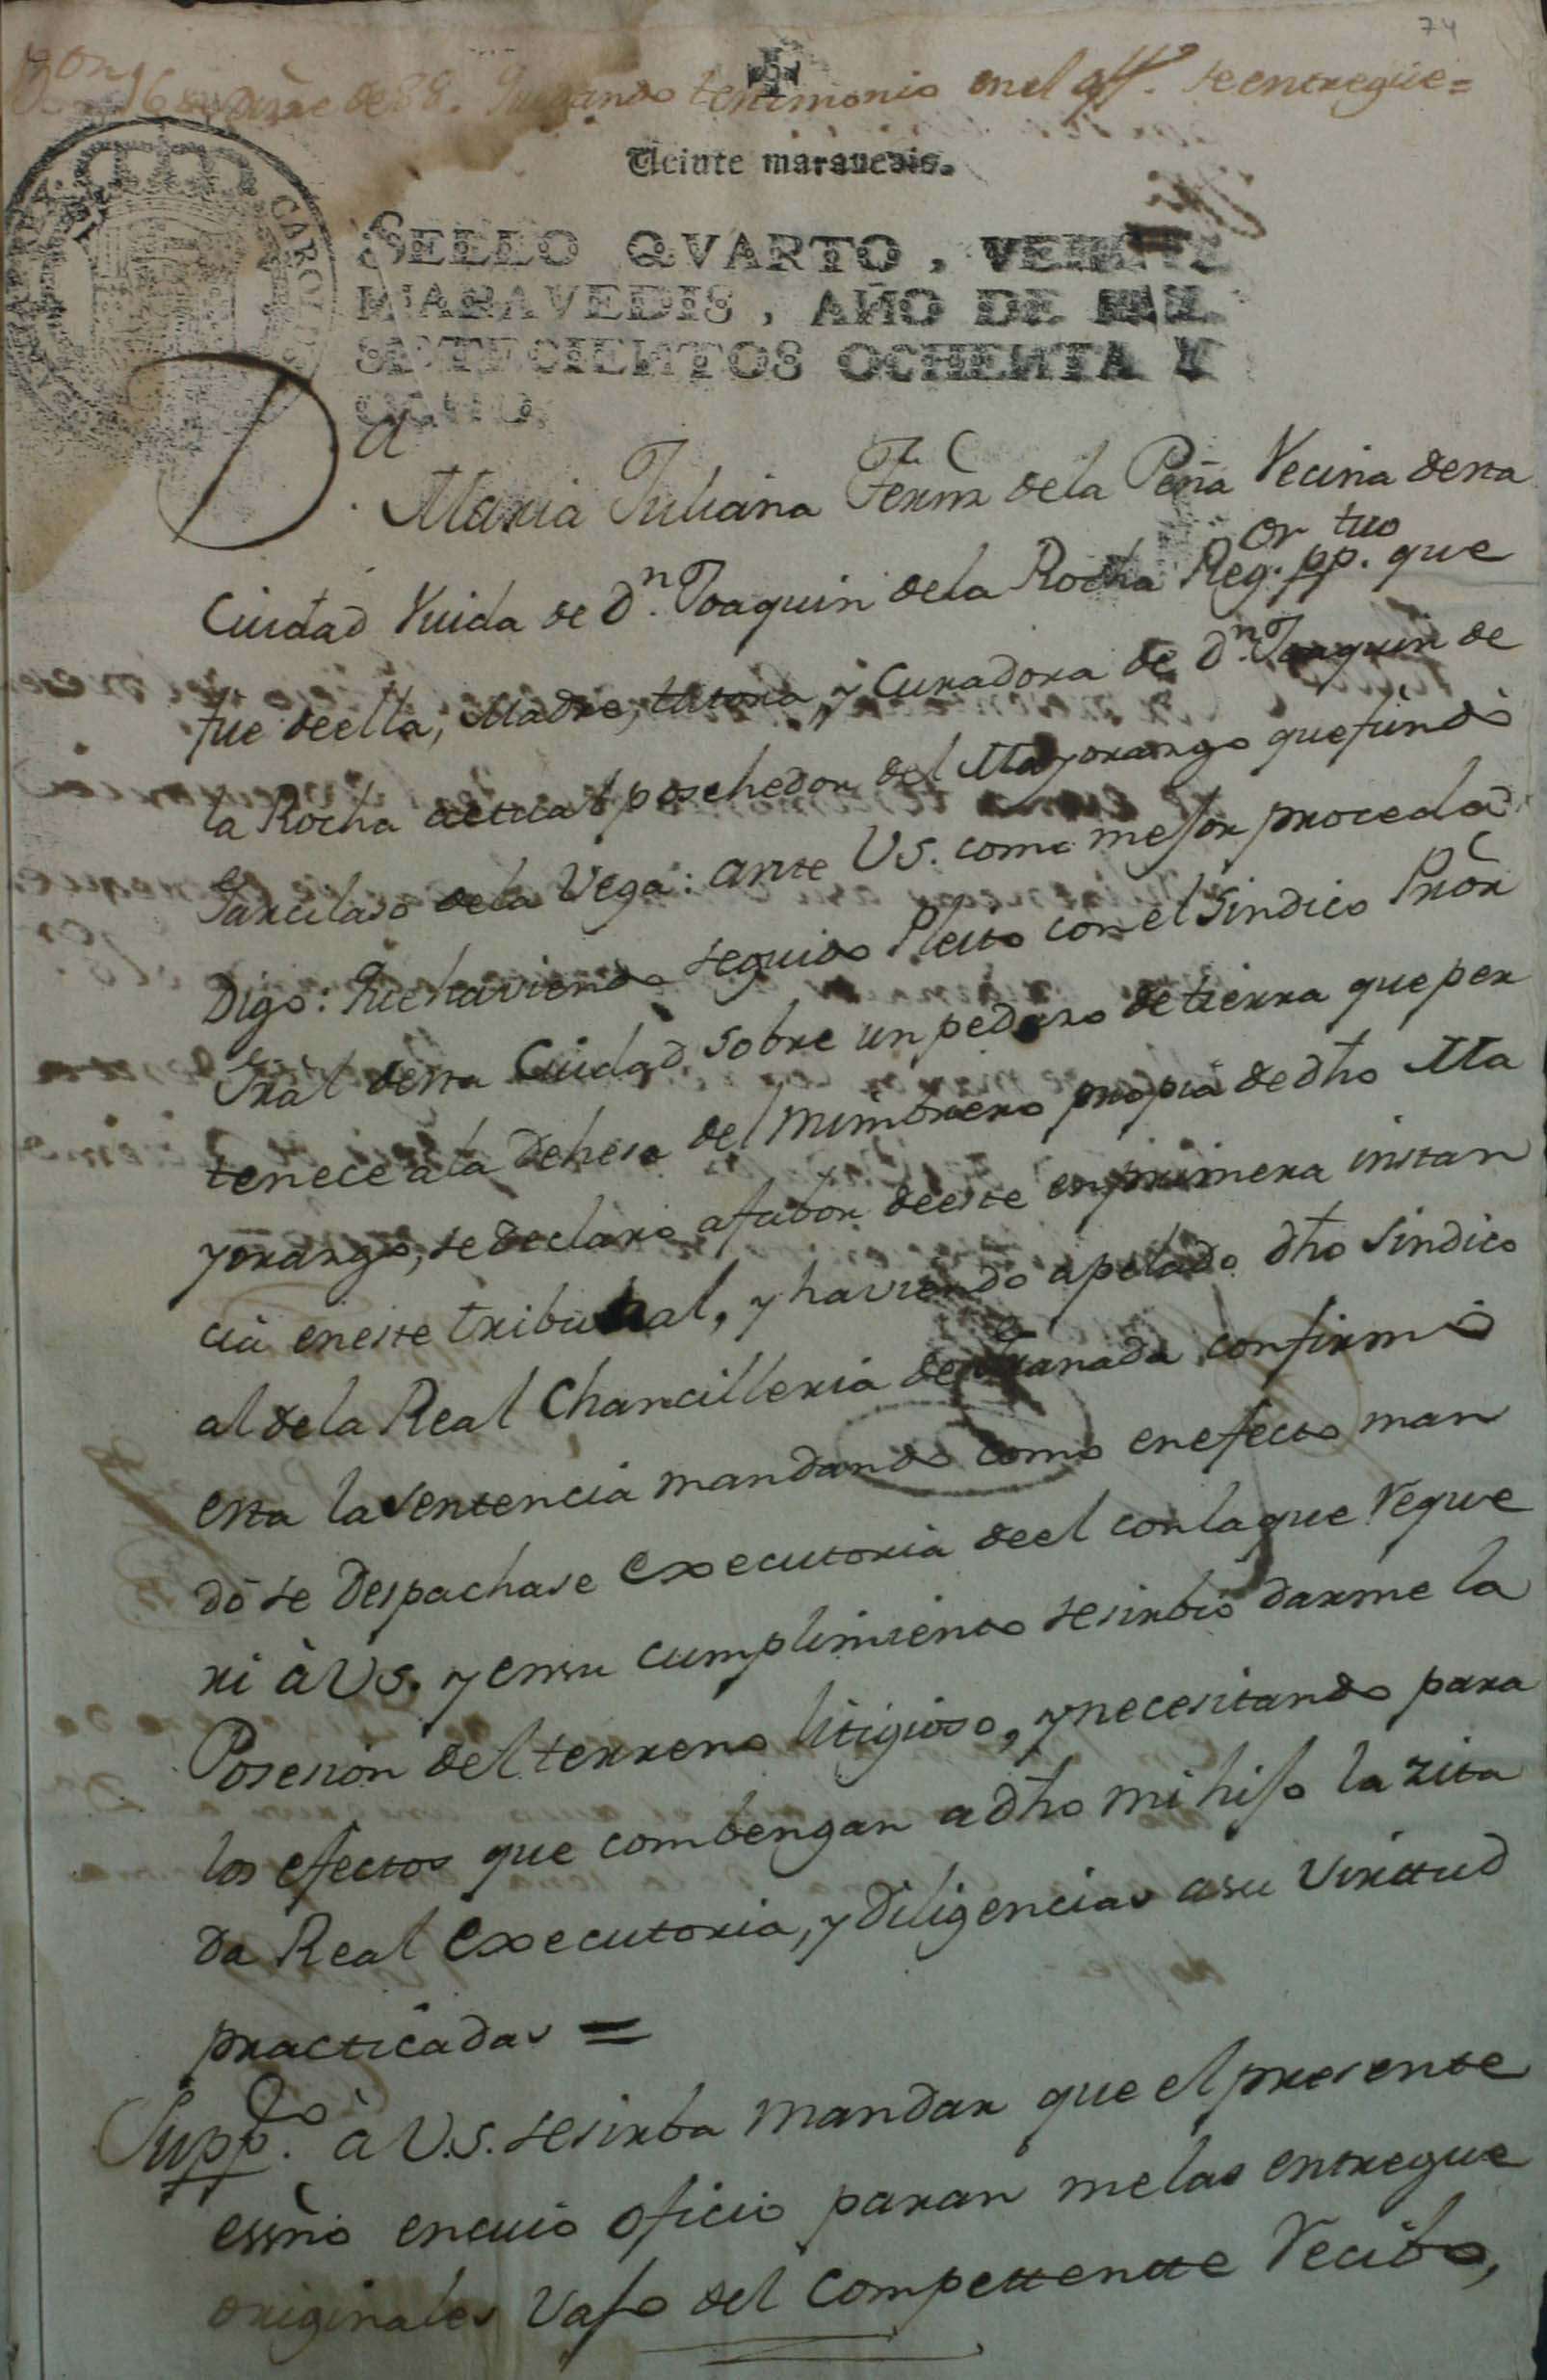 74
de 88. Quedando testimonio en el off.º se entregue =
Veinte maravedis.
SELLO QVARTO, VEINTE
MARAVEDIS, AÑO DE MIL
SETECIENTOS OCHENTA Y
OCHO.
CAROLUS
D.ª Maria Juliana Fernz de la Peña Vecina de esta
Ciudad Viuda de D.n Joaquin de la Rocha Reg.or pp.tuo que
fue de ella, Madre, tutora, y Curadora de D.n Joaquin de
la Rocha actual posehedor del Mayorazgo que fundó
Garcilaso de la Vega: ante VS. como mejor proceda
Digo: Que haviendo seguido Pleito con el Sindico Prõr
Grãl de esta Ciudad, sobre un pedazo de tierra que per
tenece a la Dehesa del Mimbrero propia de dho Ma
yorazgo, se declaró a fabor de este en primera instan
cia en este tribunal, y haviendo apelado dho Sindico
al de la Real Chancilleria de Granada confirmó
esta la sentencia mandando como en efecto man
dó se Despachase Executoria de el con la que reque
ri à VS. y en su cumplimiento se sirbió darme la
Posesion del terreno litigioso, y necesitando para
los efectos que combengan a dho mi hijo la zita
da Real Executoria, y Diligencias a su Virttud
practicadas =
Supp.co à V.S. se sirba mandar que el presente
essño en cuio oficio paran me las entregue
originales vajo del Compettentte Recibo,